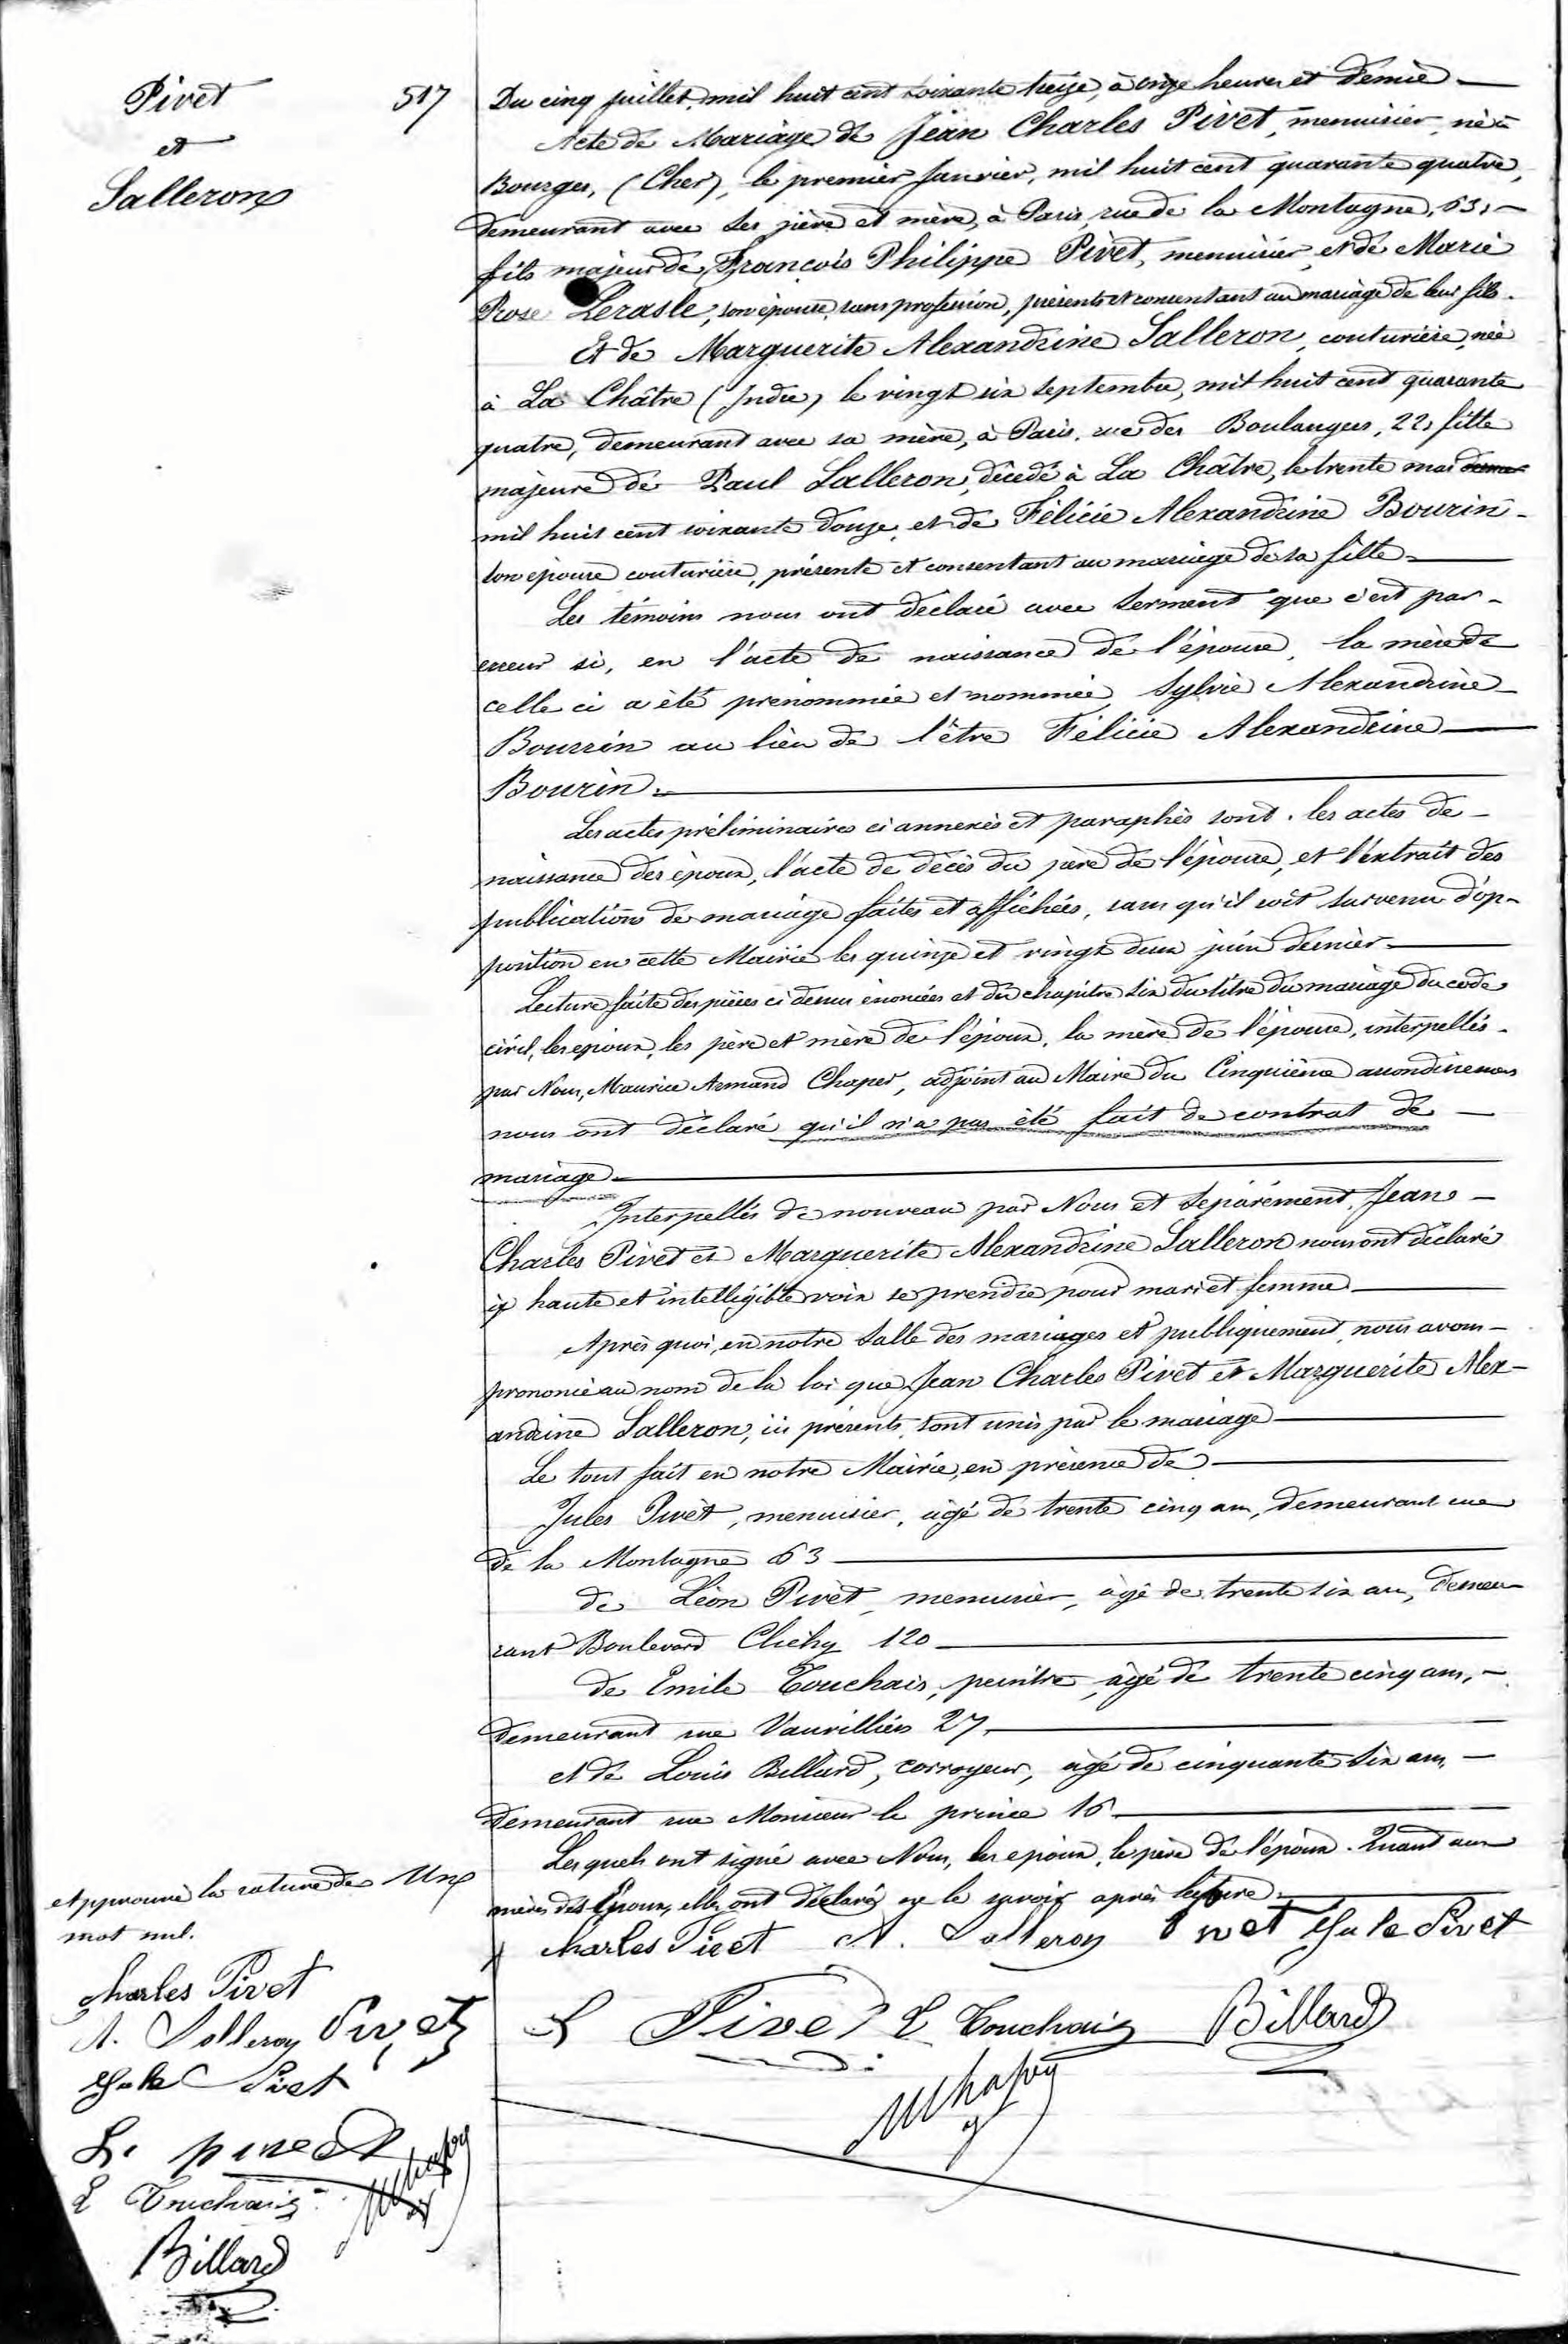 Pivet
et
Salleron
517
Du cinq juillet mil huit cent soixante treize, à onze heures et demie
Acte de Mariage de Jean Charles Pivet, menuisier, né à
Bourges, (Cher), le premier Janvier, mil huit cent quarante quatre,
demeurant avec ses père et mère, à Paris, rue de la Montagne, 63,
fils majeur de François Philippe Pivet, menuisier, et de Marie
Rose Lerasle, son épouse, sans profession, présents et consentant au mariage de leur fils.
Et de Marguerite Alexandrine Salleron, couturière, née
à La Châtre (Indre) le vingt six septembre, mil huit cent quarante
quatre, demeurant avec sa mère, à Paris, rue des Boulangers, 22, fille
majeure de Paul Salleron, décédé à La Châtre, le trente mai
mil huit cent soixante douze, et de Félicie Alexandrine Bourin
son épouse couturière, présente et consentant au mariage de sa fille
Les témoins nous ont déclaré avec serment que c'est par
erreur si, en l'acte de naissance de l'épouse, la mère de
celle ci a été prénommée et nommée Sylvie Alexandrine
Bourrin au lieu de l'être Félicie Alexandrine
Bourin.
Les actes préliminaires ci annexés et paraphés sont. les actes de
naissance des époux, l'acte de décès du père de l'épouse, et l'extrait des
publications de mariage faites et affichées, sans qu'il soit survenu d'op-
position en cette Mairie les quinze et vingt deux juin dernier
Lecture faite des pièces ci dessus énoncées et du chapitre six du titre du mariage du code
civil, les époux, les père et mère de l'époux, la mère de l'épouse, interpellés
par Nous, Maurice Armand Chaper, adjoint au Maire du Cinquième arrondissement
nous ont déclaré qu'il n'a pas été fait de contrat de
mariage
Interpellés de nouveau par Nous et séparément, Jean
Charles Pivet et Marguerite Alexandrine Salleron nous ont déclaré
à haute et intelligible voix se prendre pour mari et femme
Après quoi, en notre salle des mariages et publiquement, nous avons
prononcé au nom de la loi que Jean Charles Pivet et Marguerite Alex-
andrine Salleron, ici présents, sont unis par le mariage
Le tout fait en notre Mairie, en présence de
Jules Pivet, menuisier, âgé de trente cinq ans, demeurant rue
de la Montagne 63
de Léon Pivet, menuisier, âgé de trente six ans, demeu-
rant Boulevard Clichy 120
de Emile Touchais, peintre, âgé de trente cinq ans,
demeurant rue Vauvilliers 27
et de Louis Billard, corroyeur, âgé de cinquante six ans,
demeurant rue Monsieur le prince 16
Lesquels ont signé avec Nous, les époux, le père de l'époux. Quant aux
mères des Epoux, elles ont déclaré ne le savoir après lecture.
Charles Pivet A. Salleron Pivet Jule Pivet
L Pivet E Touchais Billard
MChaper
Approuvé la rature de Un
mot nul.
Charles Pivet
A. Salleron Pivet
Jule Pivet
L. pivet
E Touchais
MChaper
Billard